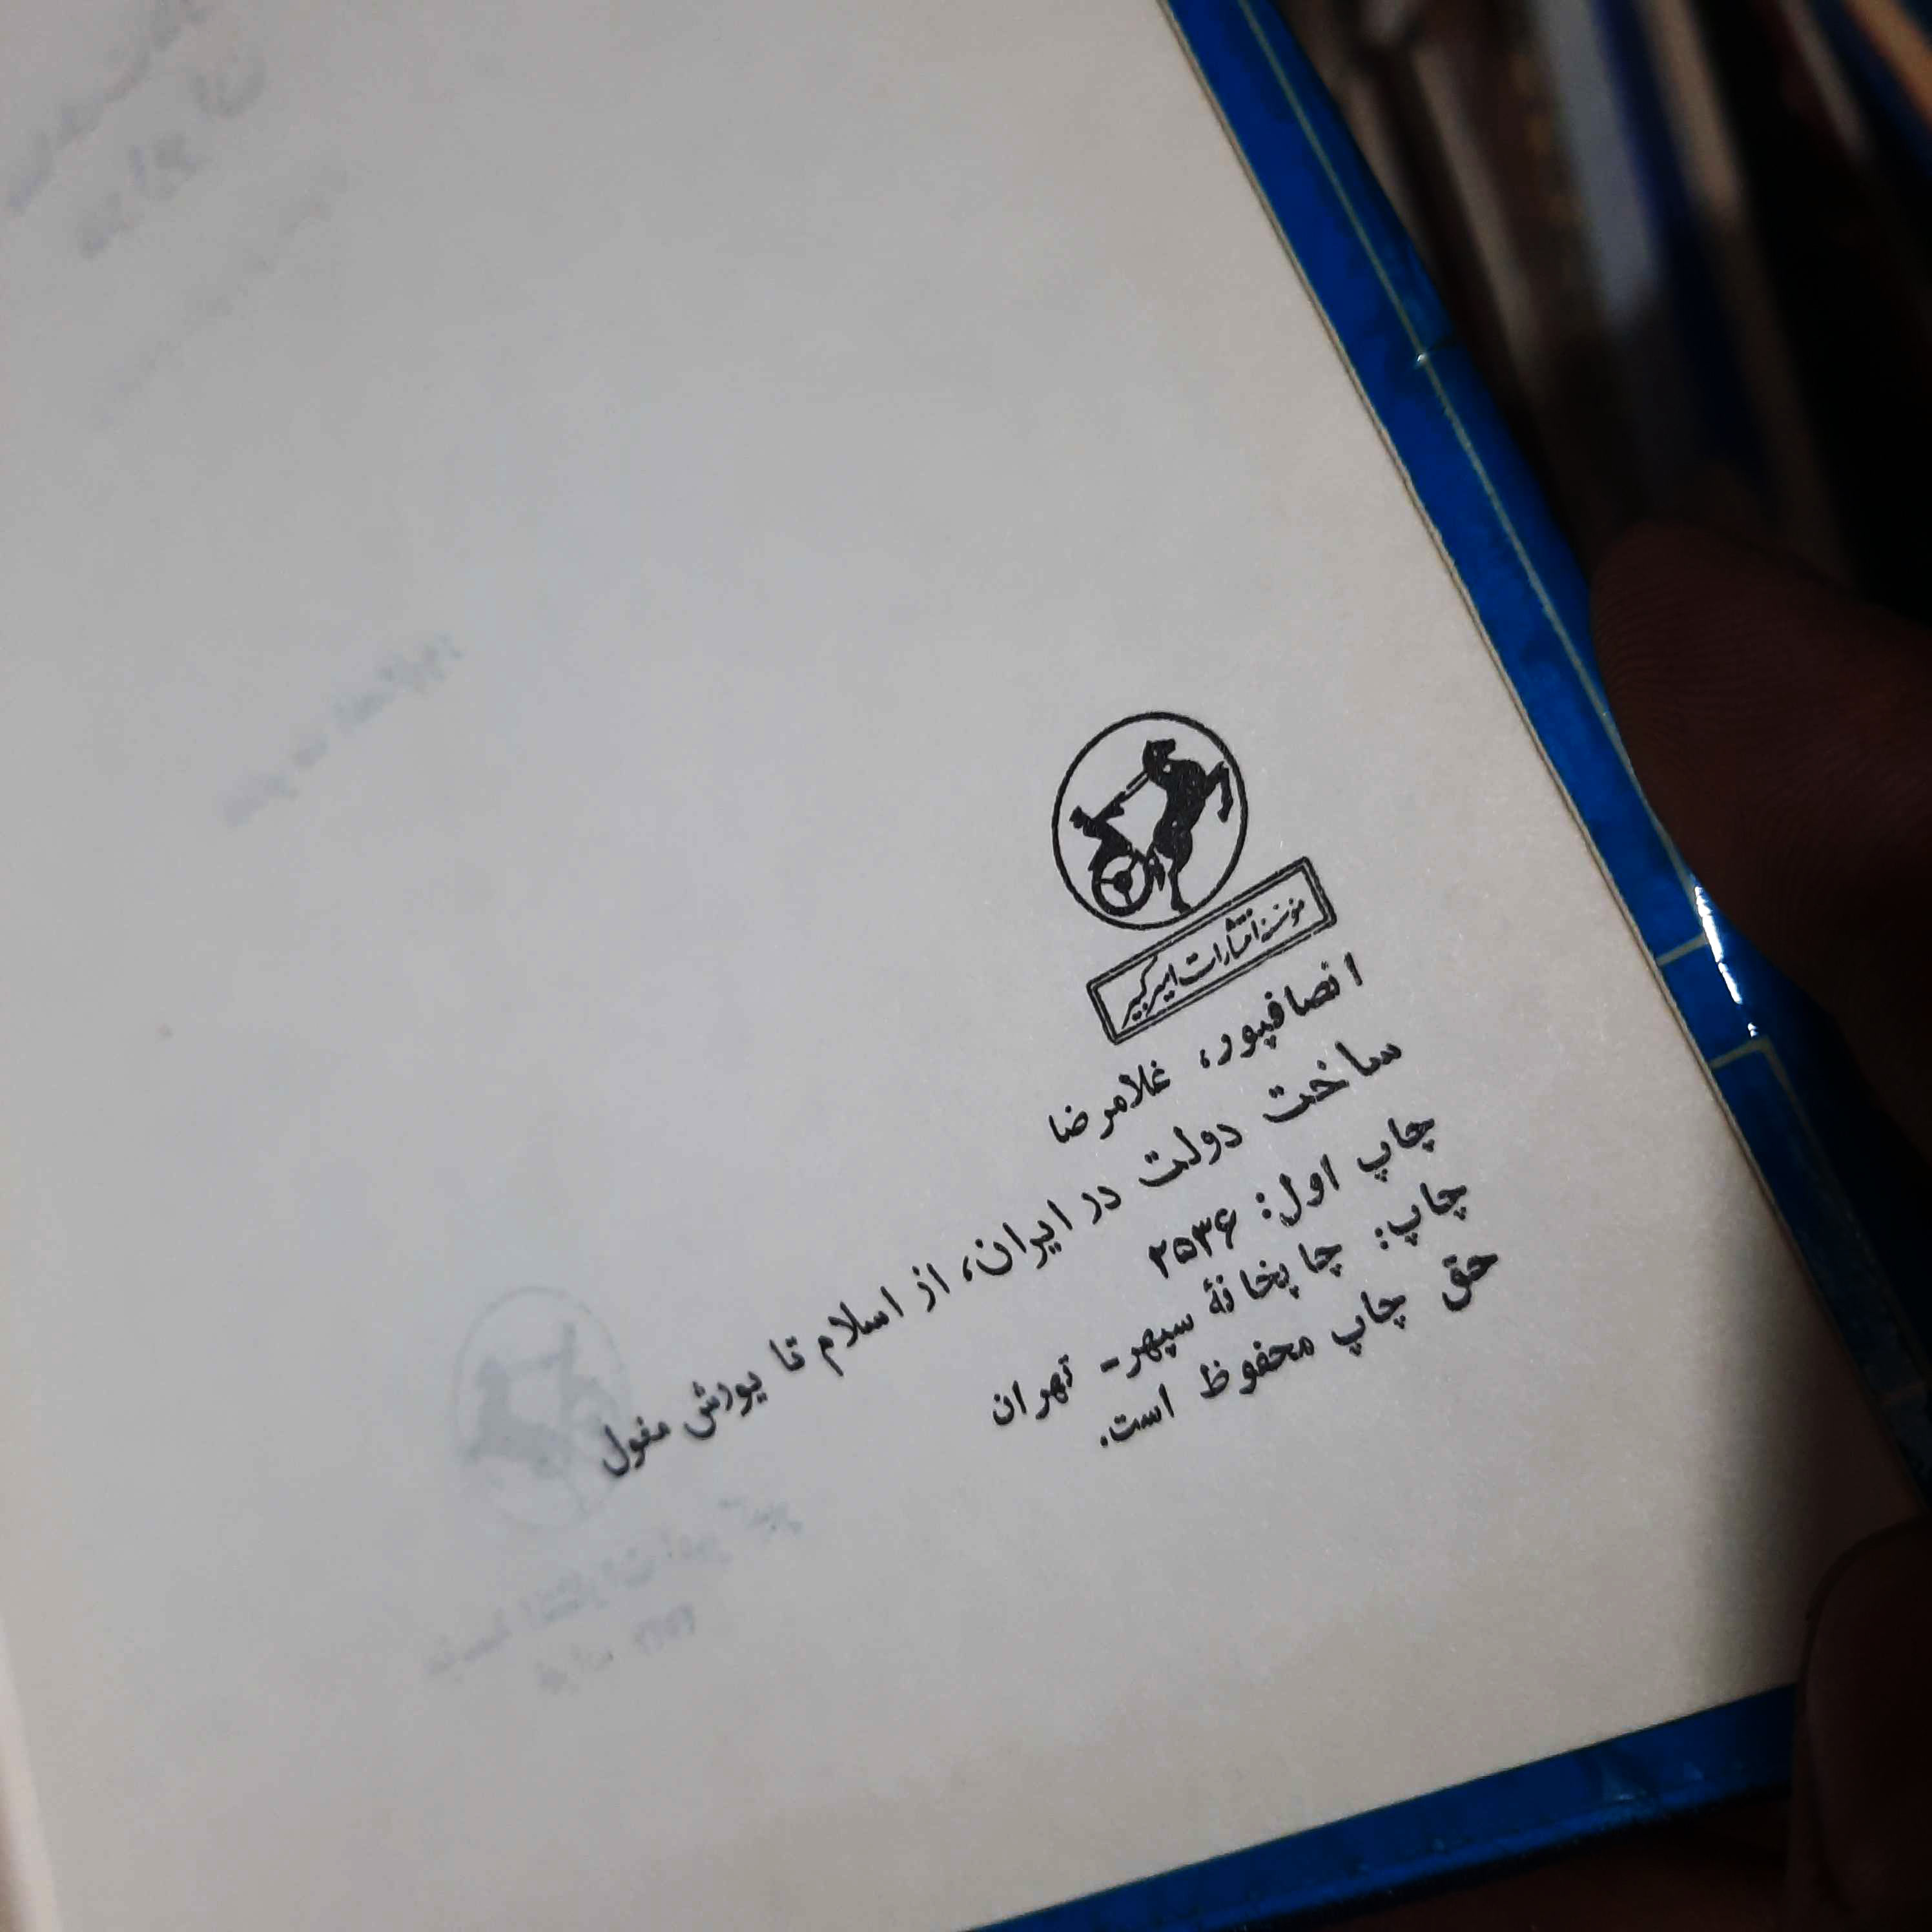 مؤسسهٔ انتشارات امیرکبیر
انصافپور، غلامرضا
ساخت دولت در ایران، از اسلام تا یورش مغول
چاپ اول: ۲۵۳۶
چاپ: چاپخانهٔ سپهر- تهران
حق چاپ محفوظ است.